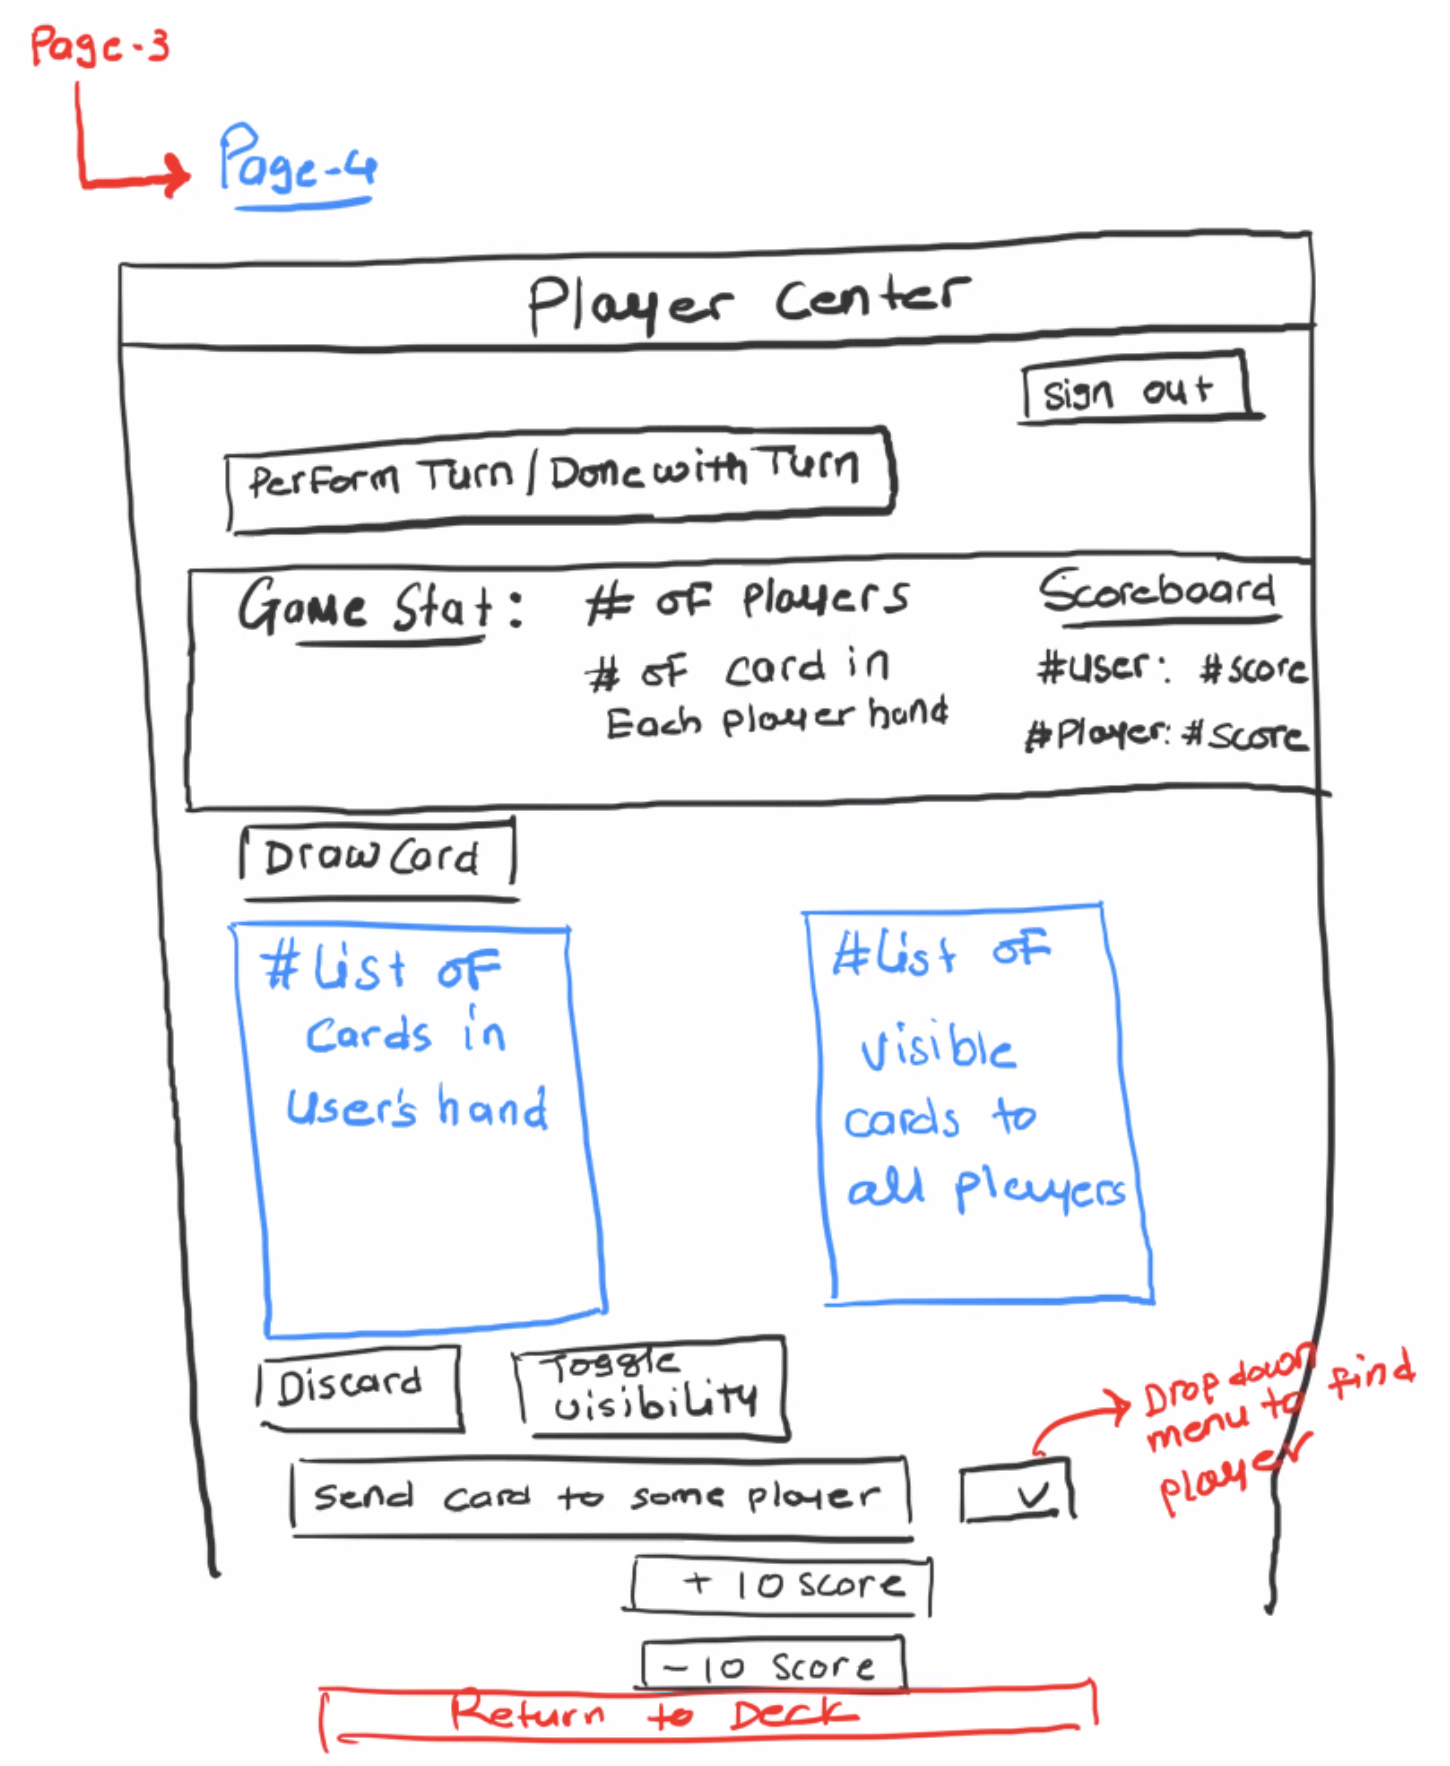 Page-3
Page-4
Player Center
Sign out
Perform Turn / Done with Turn
Game Stat: # of players
# of card in
Each player hand
Scoreboard
#user: #score
#Player: #score
Draw Card
#List of
cards in
user's hand
#List of
visible
cards to
all players
Discard
Toggle
visibility
Send card to some player
Drop down
menu to find
player
+ 10 score
- 10 score
Return to Deck